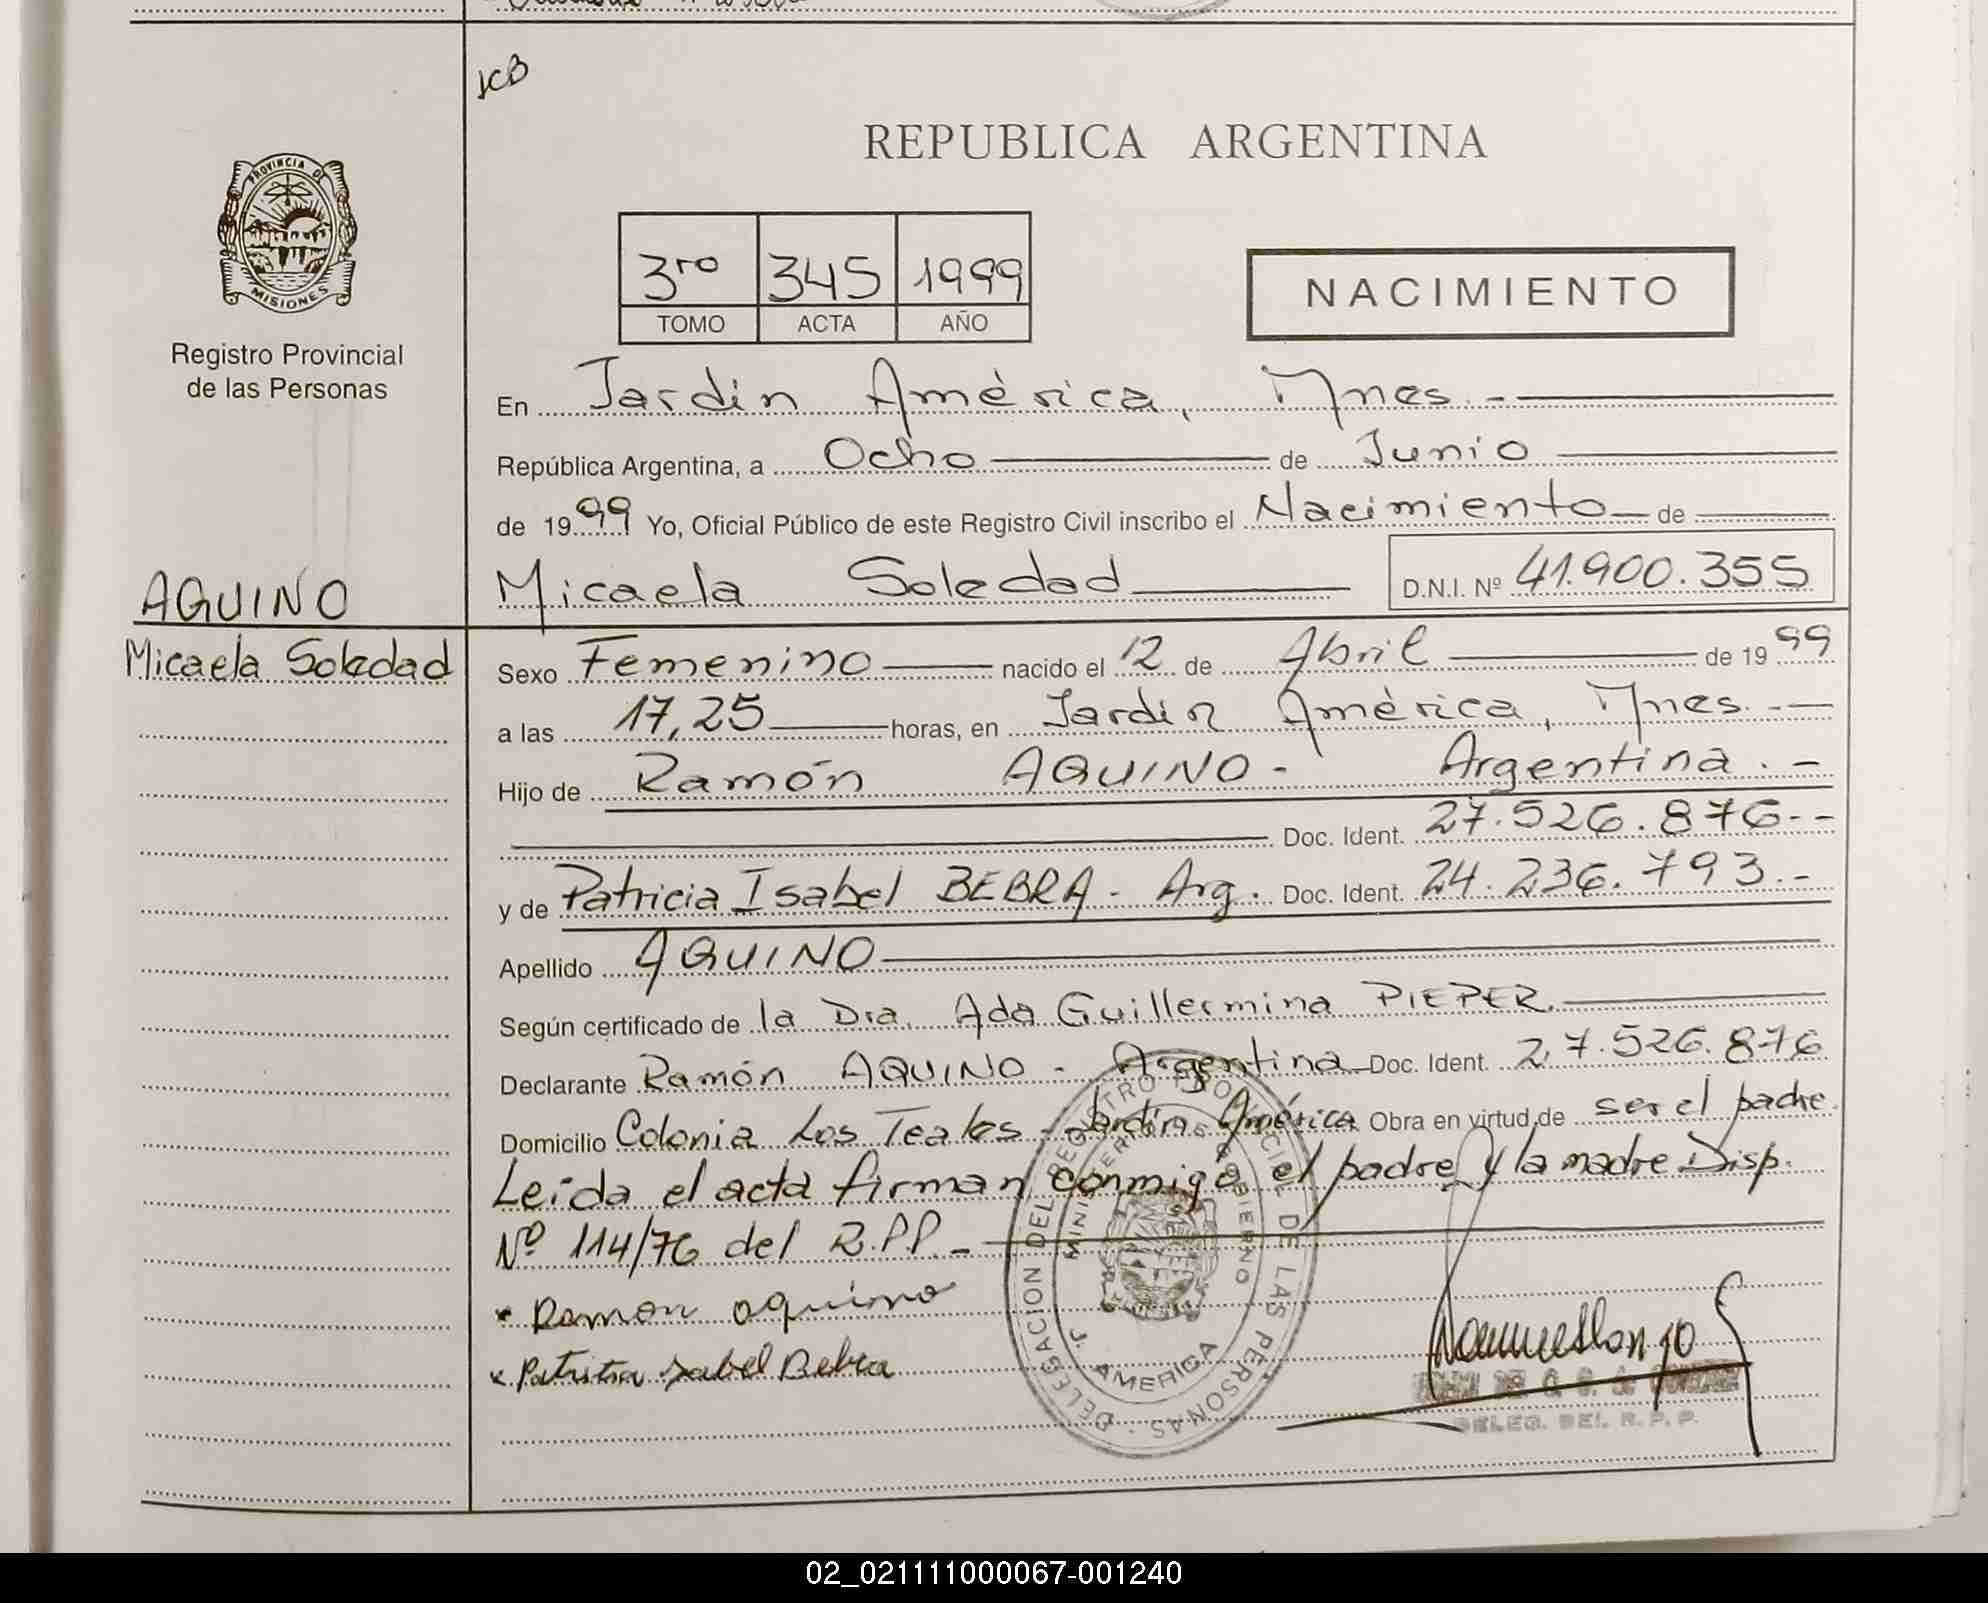 JCB
REPUBLICA ARGENTINA
PROVINCIA DE
MISIONES
Registro Provincial
de las Personas
3ro 345 1999
TOMO ACTA AÑO
NACIMIENTO
En Jardín América, Mnes. -
República Argentina, a Ocho de Junio
de 1999 Yo, Oficial Público de este Registro Civil inscribo el Nacimiento de
Micaela Soledad D.N.I. Nº 41.900.355
AQUINO
Micaela Soledad
Sexo Femenino nacido el 12 de Abril de 1999
a las 17,25 horas, en Jardín América, Mnes. -
Hijo de Ramón AQUINO - Argentina . -
Doc. Ident. 27.526.876--
y de Patricia Isabel BEBRA - Arg. Doc. Ident. 24.236.793.-
Apellido AQUINO
Según certificado de la Dra. Ada Guillermina PIEPER.
Declarante Ramón AQUINO - Argentina Doc. Ident. 27.526.876
Domicilio Colonia Los Teales - Jardín América Obra en virtud de ser el padre
Leída el acta firman conmigo el padre y la madre Disp.
Nº 114/76 del R.P.P. -
x Ramon aquino
x Patricia Isabel Bebra
DELEGACION DEL REGISTRO PROVINCIAL DE LAS PERSONAS
MINISTERIO DE GOBIERNO
J. AMERICA
DELEG. DEL R. P. P.
02_021111000067-001240